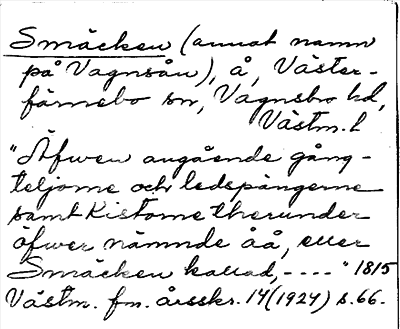 Smäcken (annat namn
på Vagnsån), å, Väster-
färnebo sn, Vagnsbro hd,
Västm. l
"Äfwen angående gång-
teljorne och ledspängerne
samt Kistorne therunder
öfwer nämnde åå, eller
Smäcken kallad,----" 1815
Västm. fm. årsskr. 14 (1924) s. 66.